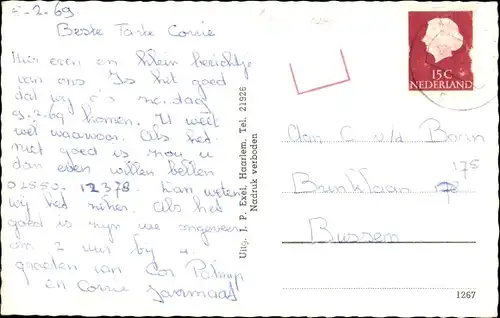 5-2-69
Beste Tante Corrie
Hier even en klein berichtje
van ons. Is het goed
dat wij o's zondag
9-2-69 komen. U weet
wel waarvoor. Als het
niet goed is zou u
dan even willen bellen
02550-12378. Dan weten
wij het zeker. Als het
goed is zijn we ongeveer
om 2 uur bij u.
groeten van Cor
en Corrie
Uitg. J. P. Exel, Haarlem, Tel. 21926
Nadruk verboden
15 C
NEDERLAND
C v/d Boom
Brinklaan
178
Bussem
1267